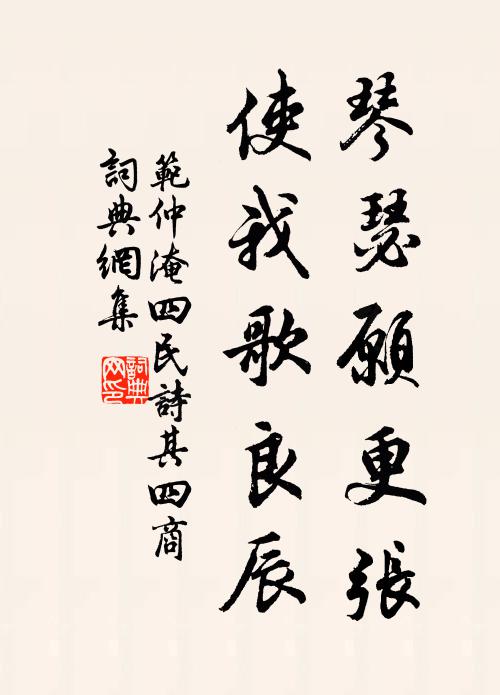 琴瑟願更張
使我歌良辰
範仲淹四民詩其四商
詞典網集
詞典網印